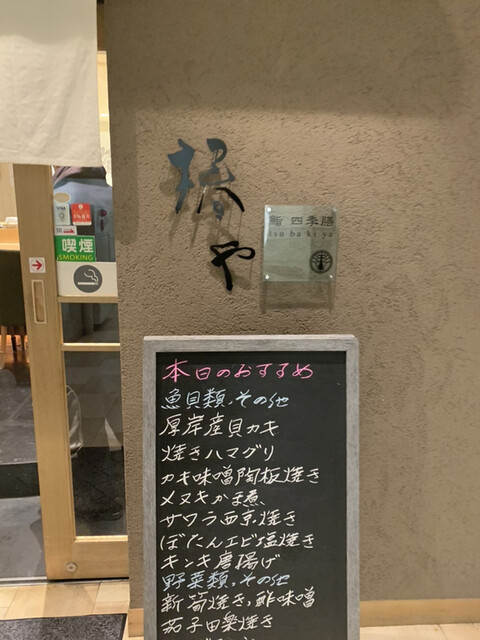 椿
や
鮨 四季膳
tsu ba ki ya
喫煙
SMOKING
本日のおすすめ
魚貝類.その他
厚岸産貝カキ
焼きハマグリ
カキ味噌陶板焼き
メヌキかま煮
サワラ西京焼き
ぼたんエビ塩焼き
キンキ唐揚げ
野菜類.その他
新筍焼き,酢味噌
茄子田楽焼き